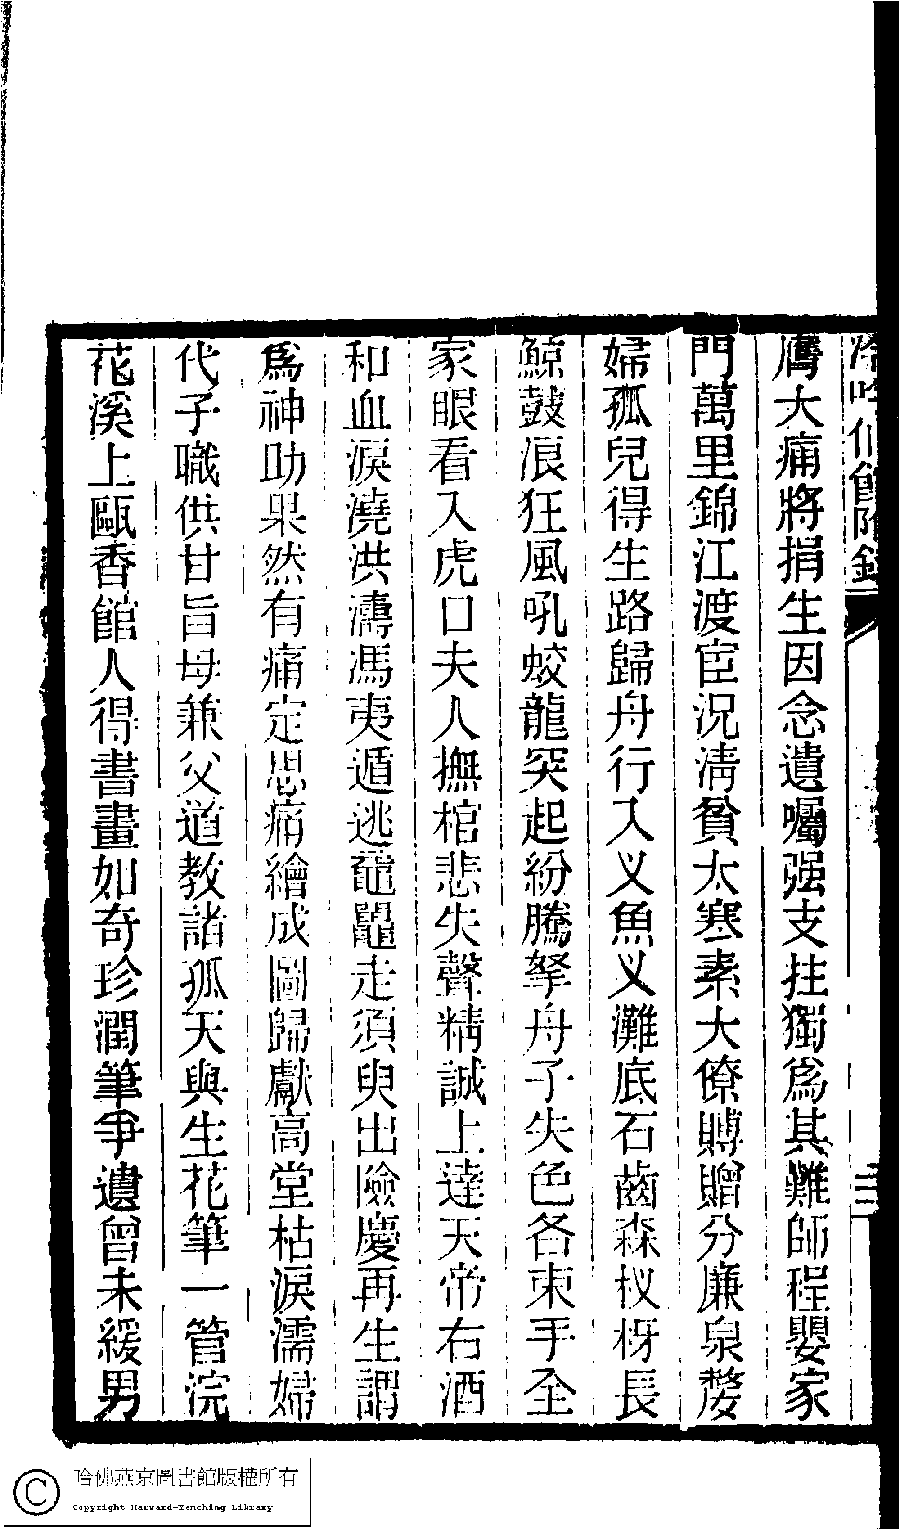 冷吟仙館附錄
膺大痛將捐生因念遺囑强支拄獨爲其難師程嬰家
門萬里錦江渡宦況淸貧太寒素大僚賻贈分廉泉嫠
婦孤兒得生路歸舟行入义魚义灘底石齒森杈枒長
鯨鼓浪狂風吼蛟龍突起紛騰拏舟子失色各束手全
家眼看入虎口夫人撫棺悲失聲精誠上達天帝右酒
和血淚澆洪濤馮夷遁逃黿鼉走須臾出險慶再生謂
爲神助果然有痛定思痛繪成圖歸獻高堂枯淚濡婦
代子職供甘旨母兼父道教諸孤天與生花筆一管浣
花溪上甌香館人得書畫如奇珍潤筆爭遺曾未緩男
哈佛燕京圖書館版權所有
Copyright Harvard-Yenching Library